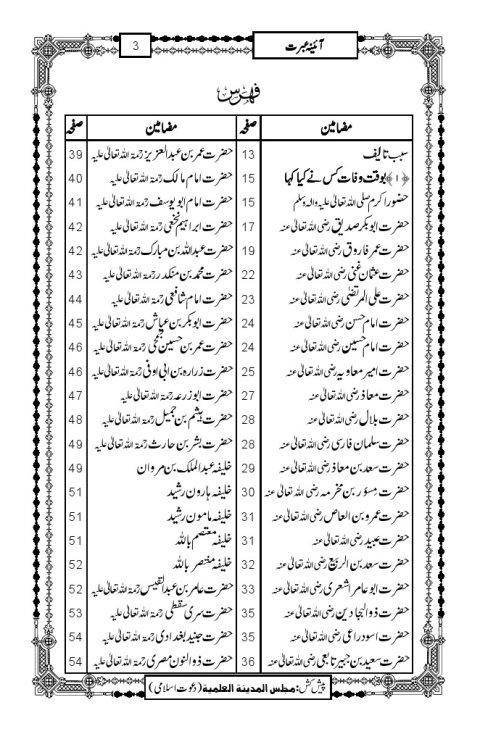 3
آئینۂ عبرت
فہرس
مضامین صفحہ
سبب تالیف 13
﴿۱﴾ بوقت وفات کس نے کیا کہا 15
حضور اکرم صلی اللہ تعالیٰ علیہ والہ وسلم 15
حضرت ابوبکر صدیق رضی اللہ تعالیٰ عنہ 17
حضرت عمر فاروق رضی اللہ تعالیٰ عنہ 19
حضرت عثمان غنی رضی اللہ تعالیٰ عنہ 22
حضرت علی المرتضٰی رضی اللہ تعالیٰ عنہ 23
حضرت امام حسن رضی اللہ تعالیٰ عنہ 24
حضرت امام حسین رضی اللہ تعالیٰ عنہ 24
حضرت امیر معاویہ رضی اللہ تعالیٰ عنہ 25
حضرت معاذ رضی اللہ تعالیٰ عنہ 27
حضرت بلال رضی اللہ تعالیٰ عنہ 28
حضرت سلمان فارسی رضی اللہ تعالیٰ عنہ 28
حضرت سعد بن معاذ رضی اللہ تعالیٰ عنہ 29
حضرت مسور بن مخرمہ رضی اللہ تعالیٰ عنہ 30
حضرت عمرو بن العاص رضی اللہ تعالیٰ عنہ 31
حضرت عبید رضی اللہ تعالیٰ عنہ 31
حضرت سعد بن الربیع رضی اللہ تعالیٰ عنہ 32
حضرت ابو عامر اشعری رضی اللہ تعالیٰ عنہ 33
حضرت ذوالبجادین رضی اللہ تعالیٰ عنہ 35
حضرت اسود راعی رضی اللہ تعالیٰ عنہ 35
حضرت سعید بن جبیر تابعی رضی اللہ تعالیٰ عنہ 36
مضامین صفحہ
حضرت عمر بن عبدالعزیز رحمۃ اللہ تعالیٰ علیہ 39
حضرت امام مالک رحمۃ اللہ تعالیٰ علیہ 40
حضرت امام ابو یوسف رحمۃ اللہ تعالیٰ علیہ 41
حضرت ابراہیم نخعی رحمۃ اللہ تعالیٰ علیہ 42
حضرت عبداللہ بن مبارک رحمۃ اللہ تعالیٰ علیہ 42
حضرت محمد بن منکدر رحمۃ اللہ تعالیٰ علیہ 43
حضرت امام شافعی رحمۃ اللہ تعالیٰ علیہ 44
حضرت ابوبکر بن عیاش رحمۃ اللہ تعالیٰ علیہ 45
حضرت عمر بن حسین جمحی رحمۃ اللہ تعالیٰ علیہ 46
حضرت زرارہ بن ابی اوفی رحمۃ اللہ تعالیٰ علیہ 46
حضرت ابو زرعہ رحمۃ اللہ تعالیٰ علیہ 47
حضرت ہیثم بن جمیل رحمۃ اللہ تعالیٰ علیہ 48
حضرت بشر بن حارث رحمۃ اللہ تعالیٰ علیہ 49
خلیفہ عبدالملک بن مروان 49
خلیفہ ہارون رشید 51
خلیفہ مامون رشید 51
خلیفہ معتصم باللہ 51
خلیفہ منتصر باللہ 52
حضرت عامر بن عبدالقیس رحمۃ اللہ تعالیٰ علیہ 52
حضرت سری سقطی رحمۃ اللہ تعالیٰ علیہ 53
حضرت جنید بغدادی رحمۃ اللہ تعالیٰ علیہ 54
حضرت ذوالنون مصری رحمۃ اللہ تعالیٰ علیہ 54
پیش کش: مجلس المدینۃ العلمیۃ (دعوت اسلامی)